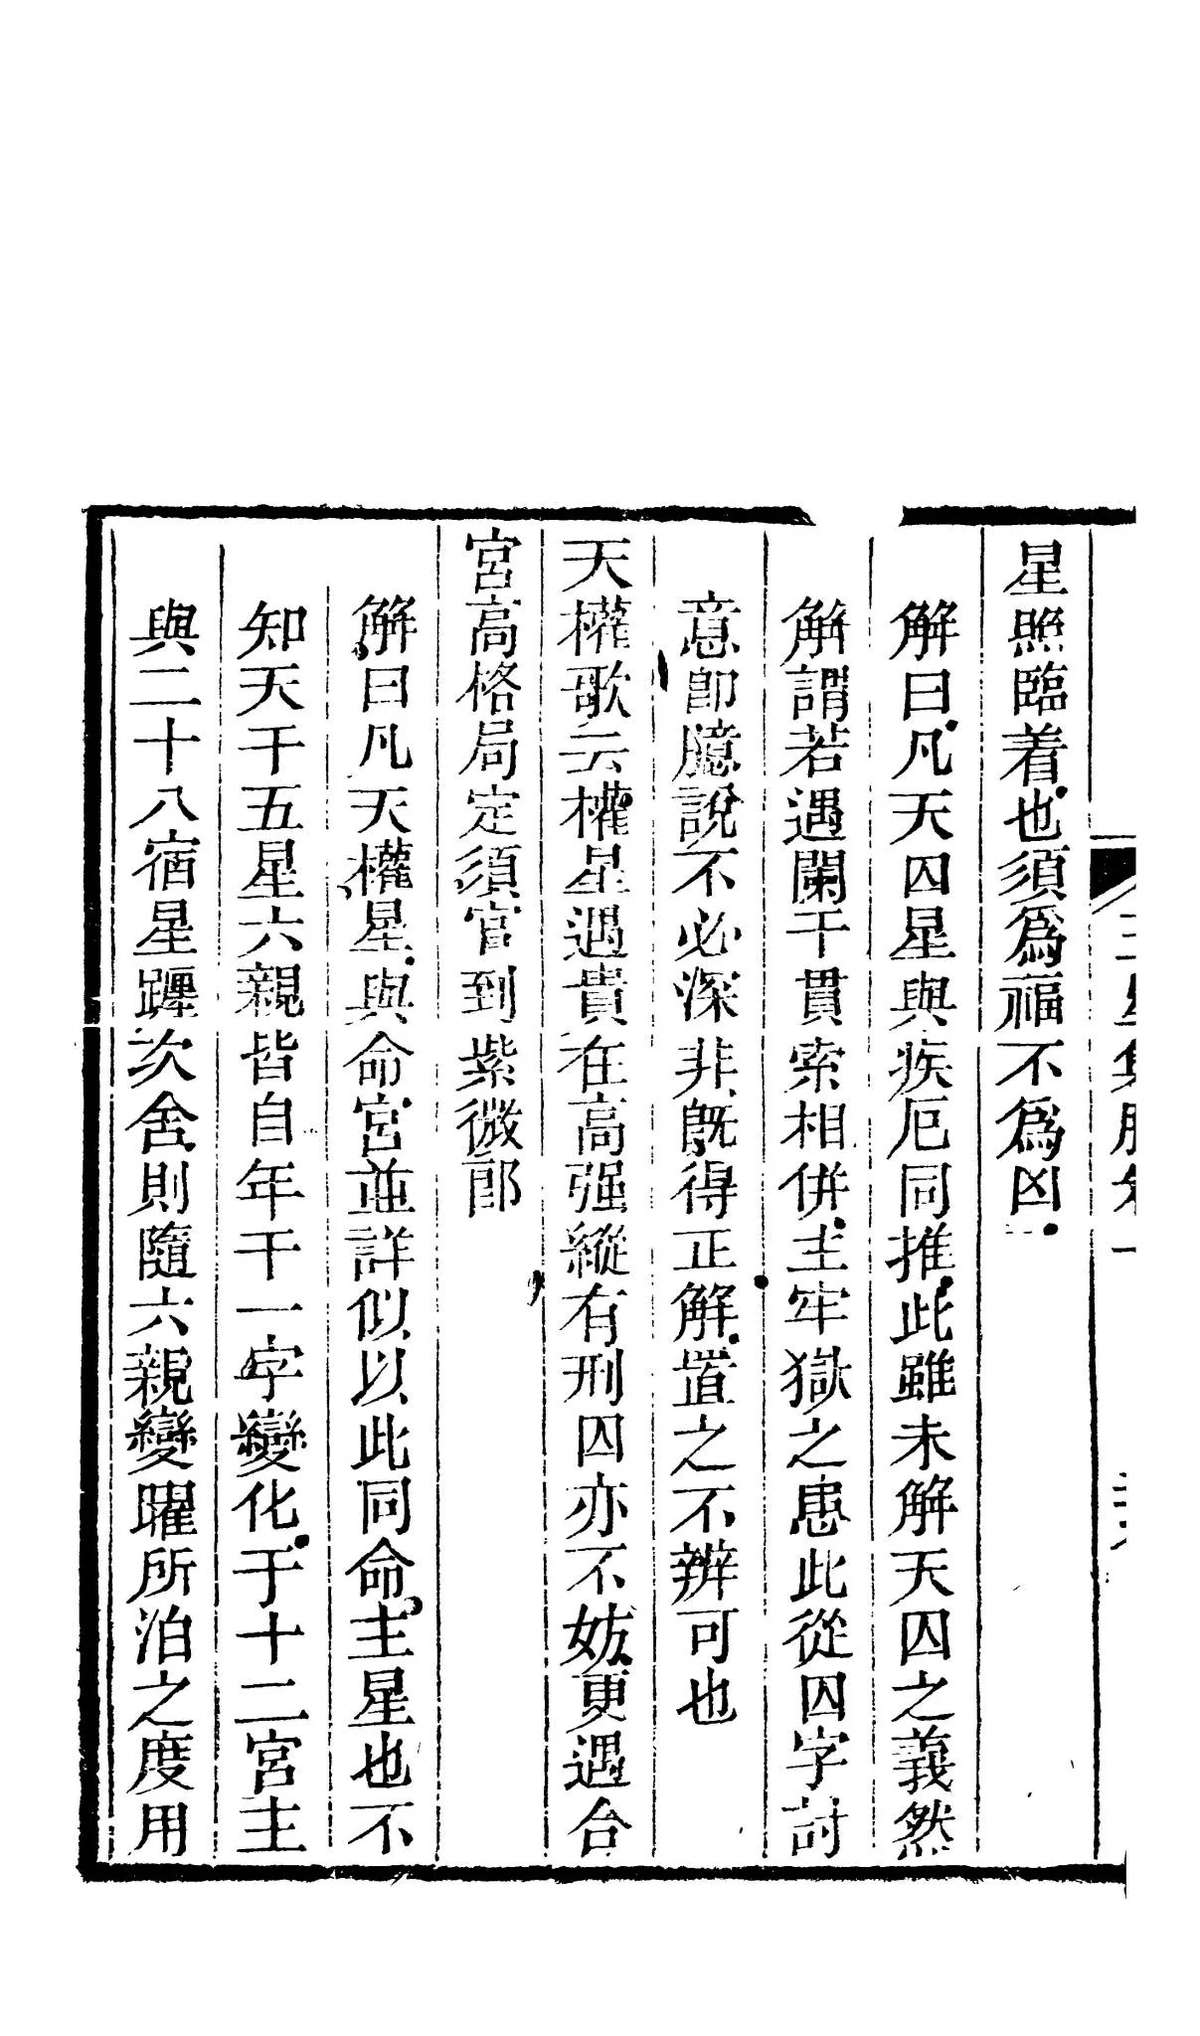 星照臨着也須為福不為凶
解曰凡天囚星與疾厄同推此雖未解天囚之義然
解謂若遇闌干貫索相併主牢獄之患此從囚字討
意卽臆說不必深非旣得正解置之不辨可也
天權歌云權星遇貴在高强縱有刑囚亦不妨更遇合
宮高格局定須官到紫微郎
解曰凡天權星與命宮並詳似以此同命主星也不
知天干五星六親皆自年干一字變化于十二宮主
與二十八宿星躔次舍則隨六親變曜所泊之度用